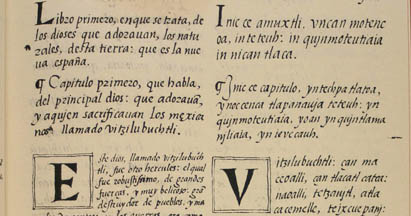 Libro primero, en que se trata, de
los dioses que adorauan, los natu
rales, desta tierra: que es la nue
ua españa.
¶ Capitulo primero, que habla,
del principal dios: que adorauã,
y aqujen sacrificauan los mexica
nos llamado vitzilubuchtli.
Este dios, llamado vitzilubuch
tli, fue otro hercules: el qual
fue robustissimo, de grandes
fuerças, y muy belicoso: gran
destruydor de pueblos, y ma
Inic ce amuxtli. vncan moteneoa
in teteuh: in qujnmoteutiaia
in nican tlaca.
¶ Inic ce capitulo. yntechpa tlatoa,
ynoccenca tlapanauja teteuh: yn
qujnmoteutiaia, yoan ynqujntlama
njliaia, yn ieuecauh.
Vitzilubuchtli: çan ma
ceoalli, çan tlacatl catca:
naoalli, tetzaujtl, atla
cacemelle, teixcuepanj: